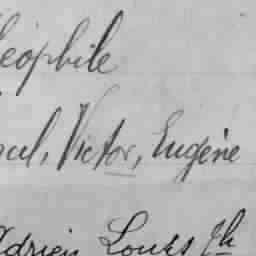 éophile
Victor, Eugène
Adrien Louis